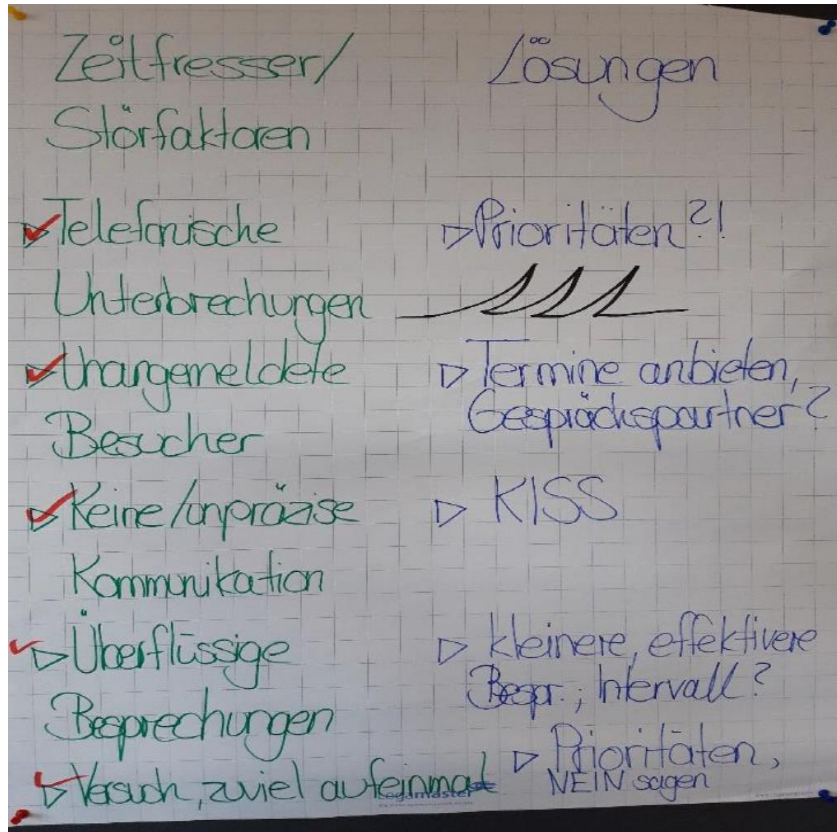 Zeitfresser/
Störfaktoren
Telefonische
Unterbrechungen
Unangemeldete
Besucher
Keine/unpräzise
Kommunikation
Überflüssige
Besprechungen
Versuch, zuviel aufeinmal
Lösungen
Prioritäten?!
Termine anbieten,
Gesprächspartner?
KISS
kleinere, effektivere
Bespr.; Intervall?
Prioritäten,
NEIN sagen
Legamaster